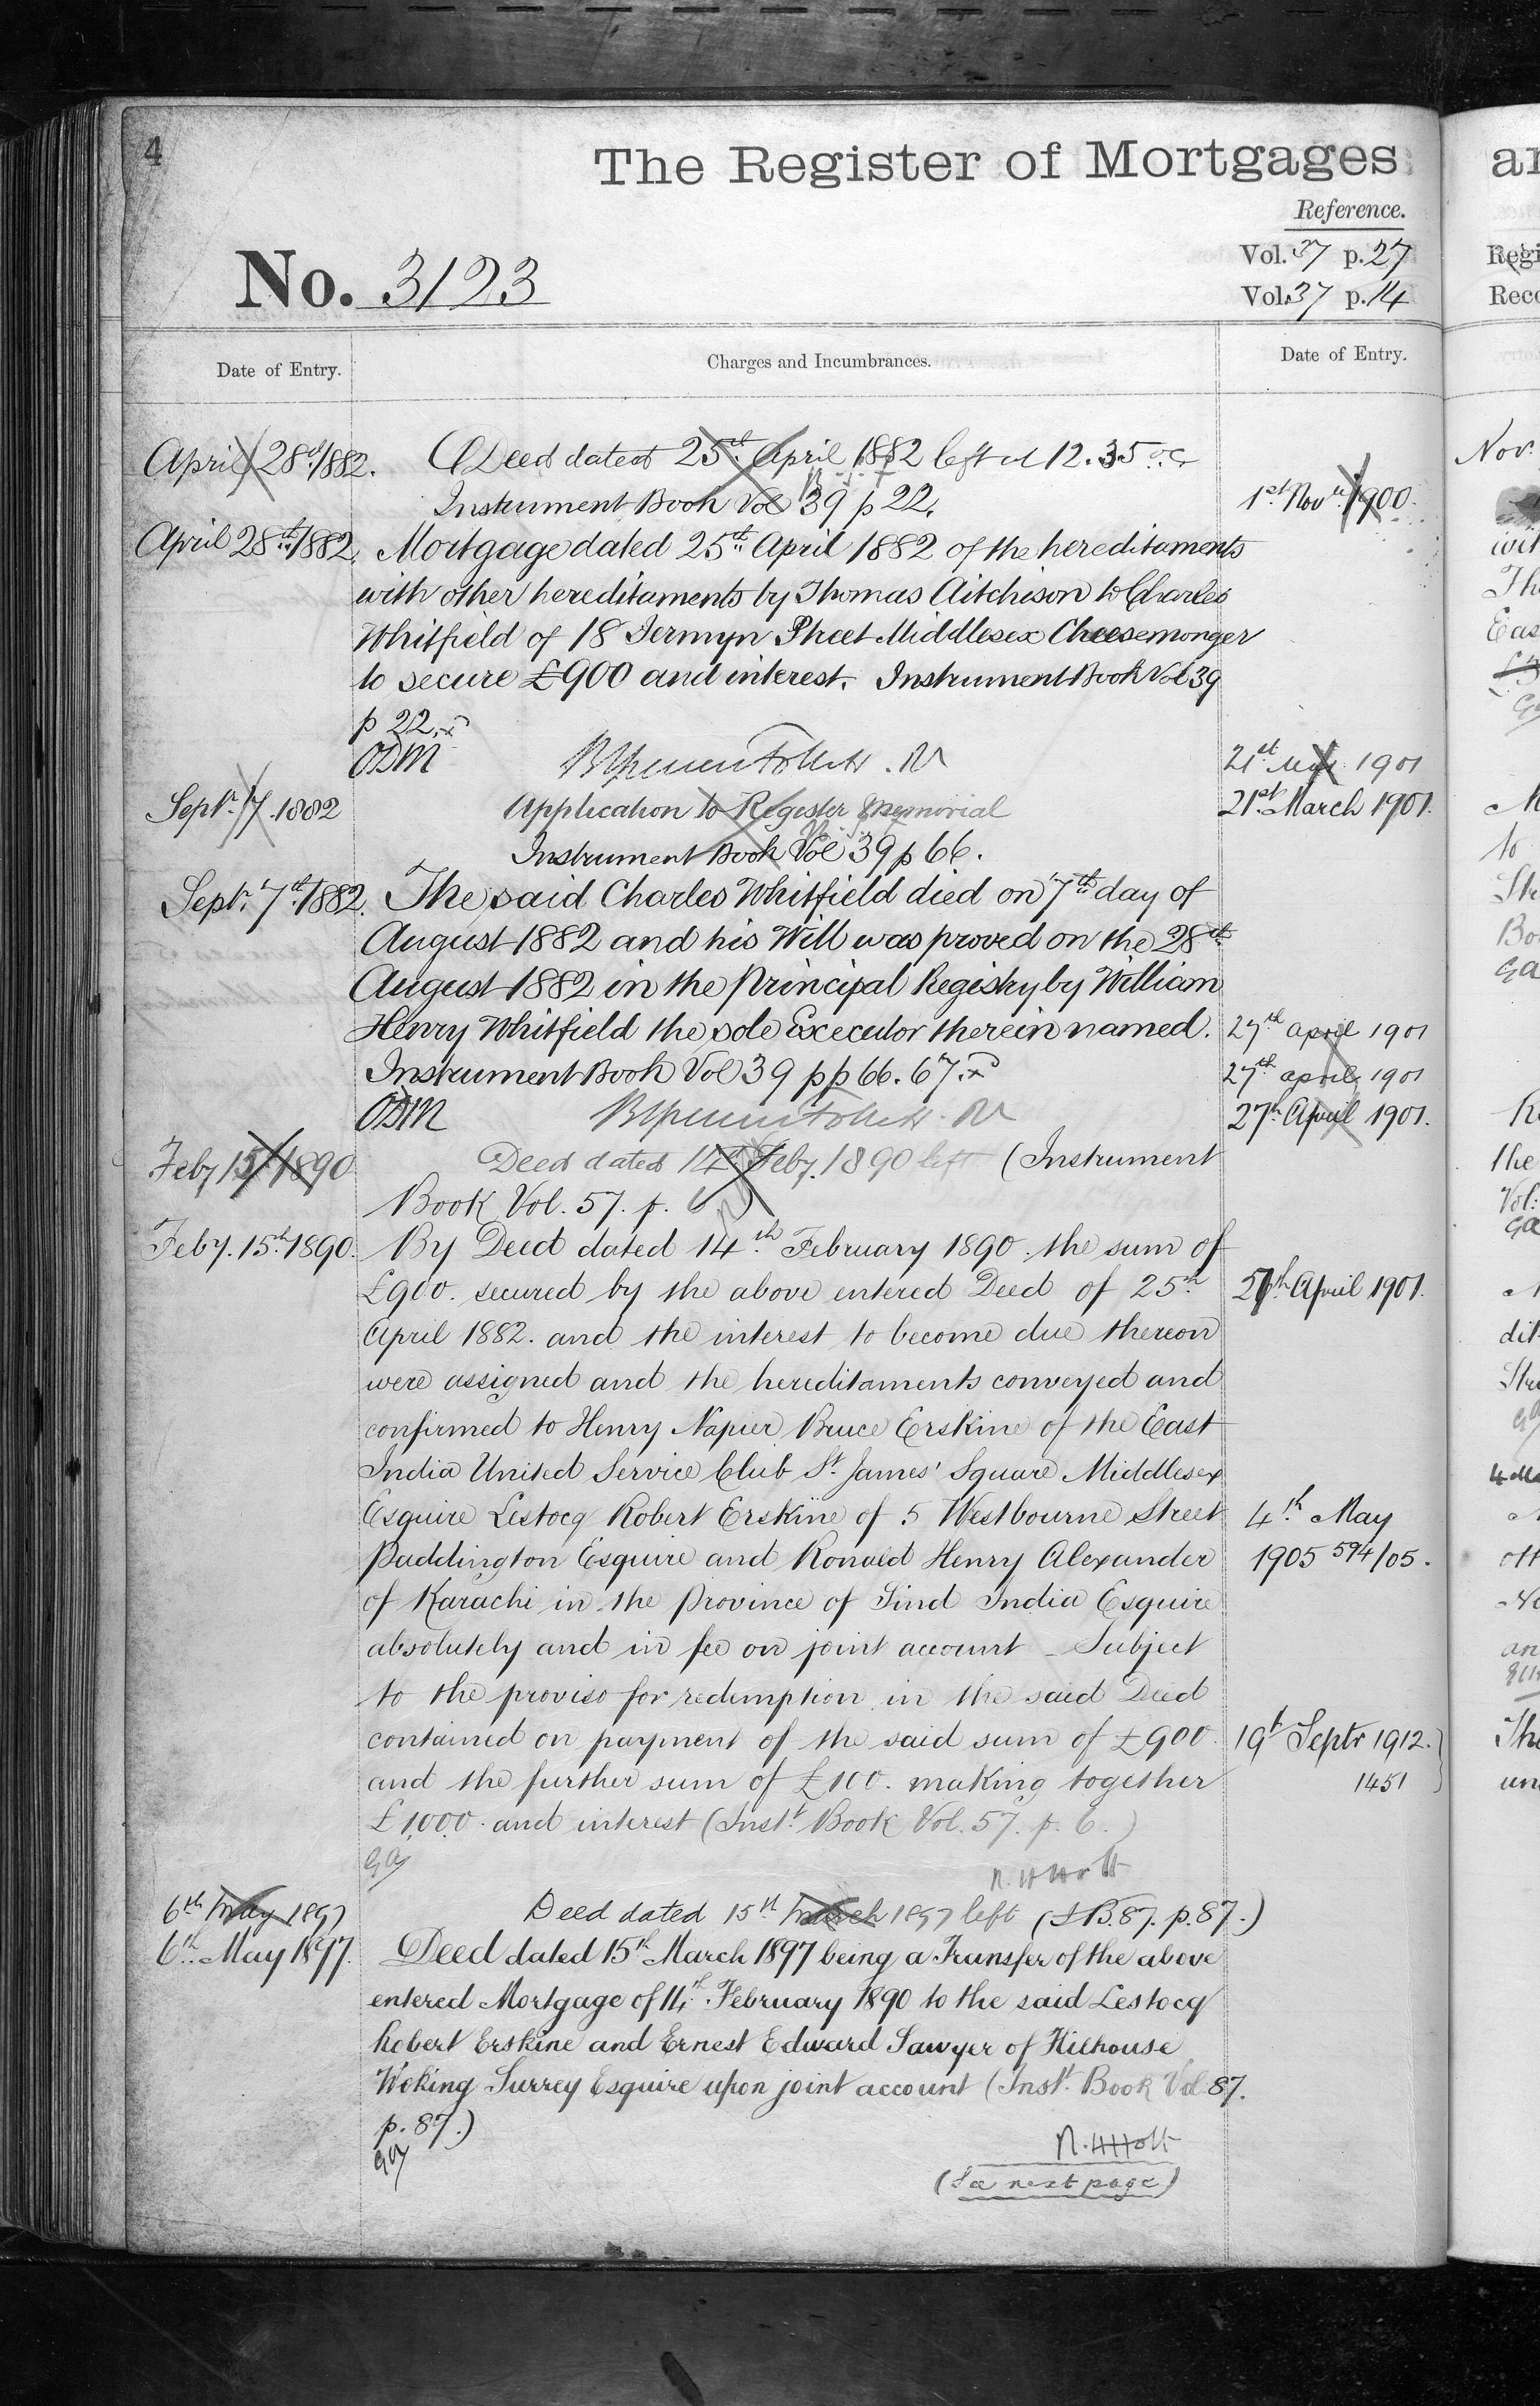 4
The Register of Mortgages
Reference.
Vol. 37 p. 27
Vol. 37 p. 14
No. 3123
Date of Entry.
Charges and Incumbrances.
Date of Entry.
April 28th 1882. Deed dated 25th April 1882 left at 12.35
Instrument Book Vol 39 p 22.
1st Novr 1900.
April 28th 1882. Mortgage dated 25th April 1882 of the hereditaments
with other hereditaments by Thomas Aitchison to Charles
Whitfield of 18 Jermyn Street Middlesex Cheesemonger
to secure £900 and interest. Instrument Book Vol 39
p 22.
ODM
21st 1901
Septr. 7. 1882 Application to Register Memorial
21st March 1901.
Instrument Book Vol 39 p 66.
Septr. 7th 1882. The said Charles Whitfield died on 7th day of
August 1882 and his Will was proved on the 28th
August 1882 in the Principal Registry by William
Henry Whitfield the sole Executor therein named.
27th april 1901
Instrument Book Vol 39 pp 66. 67.
27th april 1901
ODM
27th April 1901.
Feby 15th 1890 Deed dated 14th Feby. 1890 left (Instrument
Book Vol. 57. p. 6)
Feby. 15th 1890. By Deed dated 14th February 1890. the sum of
£900. secured by the above entered Deed of 25th
April 1901.
April 1882. and the interest to become due thereon
were assigned and the hereditaments conveyed and
confirmed to Henry Napier Bruce Erskine of the East
India United Service Club St. James' Square Middlesex
Esquire Lestocq Robert Erskine of 5 Westbourne Street
4th May
Paddington Esquire and Ronald Henry Alexander
1905 594/05.
of Karachi in the Province of Sind India Esquire
absolutely and in fee on joint account _ Subject
to the proviso for redemption in the said Deed
contained on payment of the said sum of £900.
19t Septr 1912.
and the further sum of £100. making together
1451
£1000. and interest (Inst.t Book Vol. 57. p. 6.)
GG
N. H Holt
6th May 1897 Deed dated 15th March 1897 left (I B. 87. p. 87.)
6th May 1897. Deed dated 15th March 1897 being a Transfer of the above
entered Mortgage of 14th February 1890 to the said Lestocq
Robert Erskine and Ernest Edward Sawyer of Hilhouse
Woking Surrey Esquire upon joint account (Inst.t Book Vol 87.
p. 87.)
N. H Holt
(See next page)